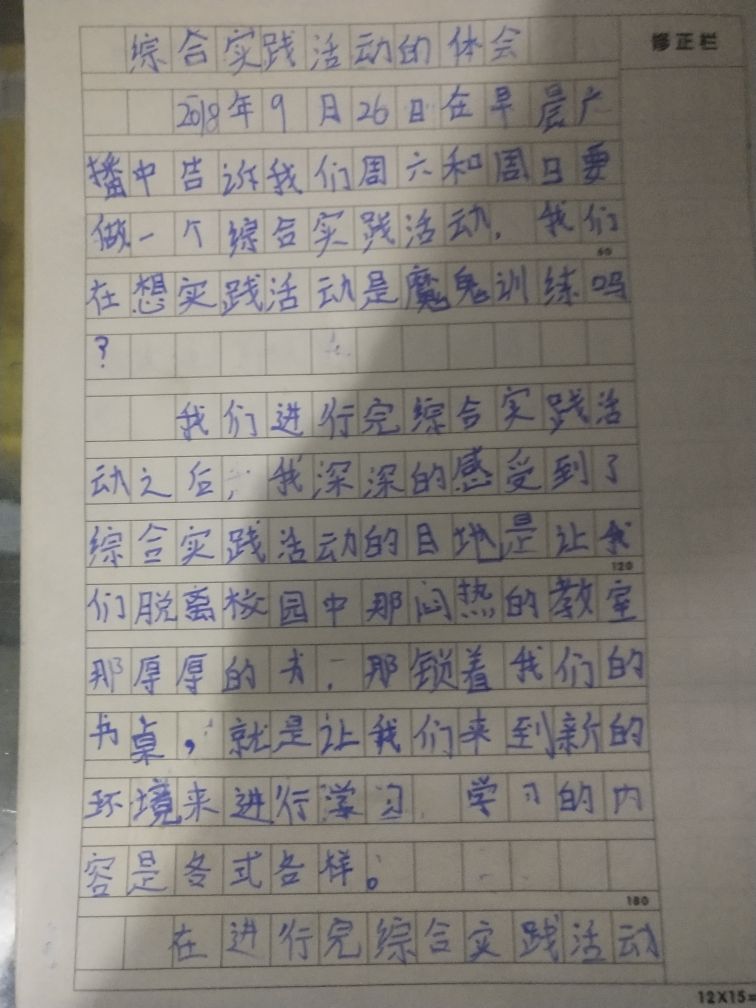 综合实践活动的体会
修正栏
2018年9月26日在早晨广
播中告诉我们周六和周日要
做一个综合实践活动，我们
60
在想实践活动是魔鬼训练吗
？
我们进行完综合实践活
动之后，我深深的感受到了
综合实践活动的目地是让我
120
们脱离校园中那闷热的教室
那厚厚的书，那锁着我们的
书桌，就是让我们来到新的
环境来进行学习，学习的内
容是各式各样。
180
在进行完综合实践活动
12X15=